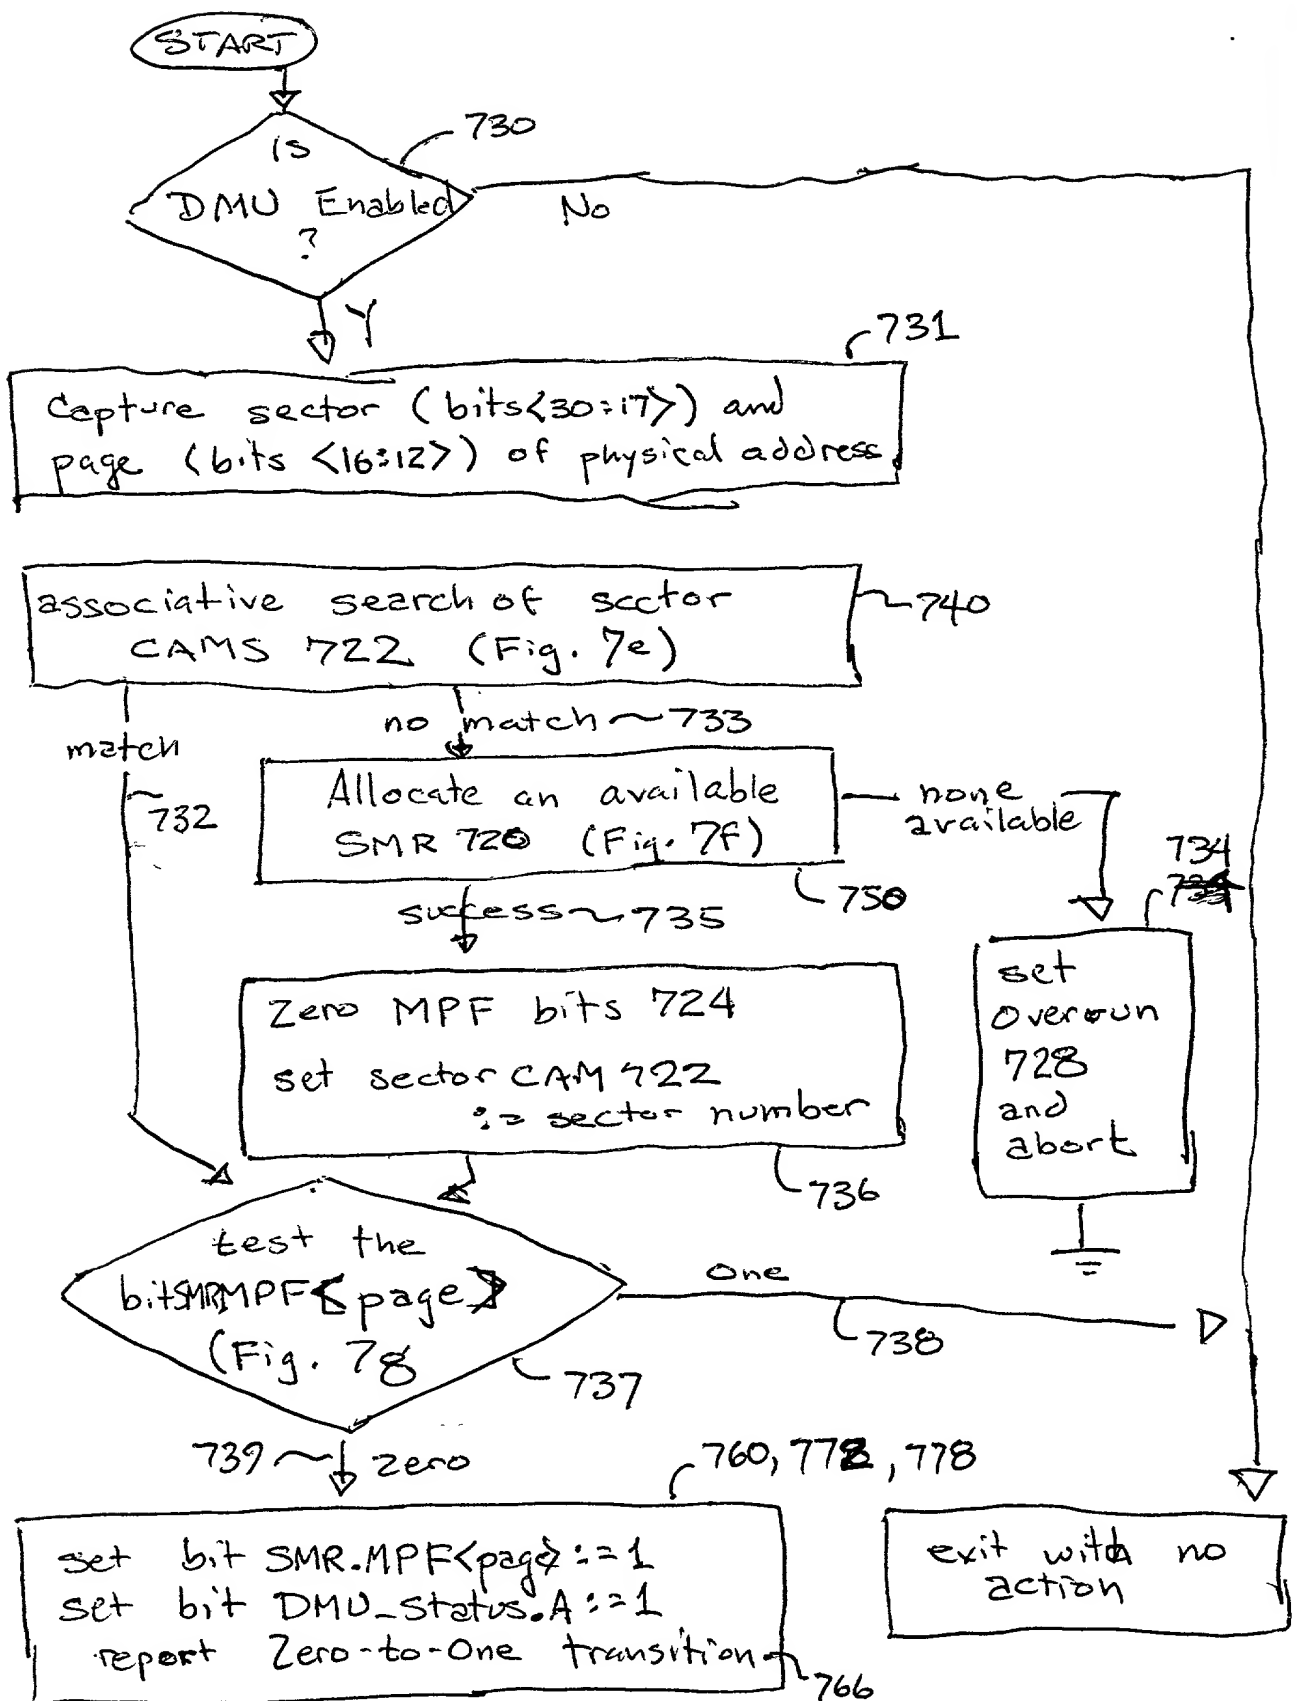 START
730
is
DMU Enabled
?
No
Y
731
Capture sector (bits<30:17>) and
page (bits <16:12>) of physical address
associative search of sector
CAMS 722 (Fig. 7e)
740
match
no match 733
732
Allocate an available
SMR 720 (Fig. 7f)
none
available
750
734
success 735
Zero MPF bits 724
set sector CAM 722
:= sector number
736
set
overrun
728
and
abort
test the
bit SMR MPF<page>
(Fig. 7g
737
One
738
739
zero
760, 772, 778
set bit SMR.MPF<page>:=1
set bit DMU_Status.A:=1
report Zero-to-One transition
766
exit with no
action